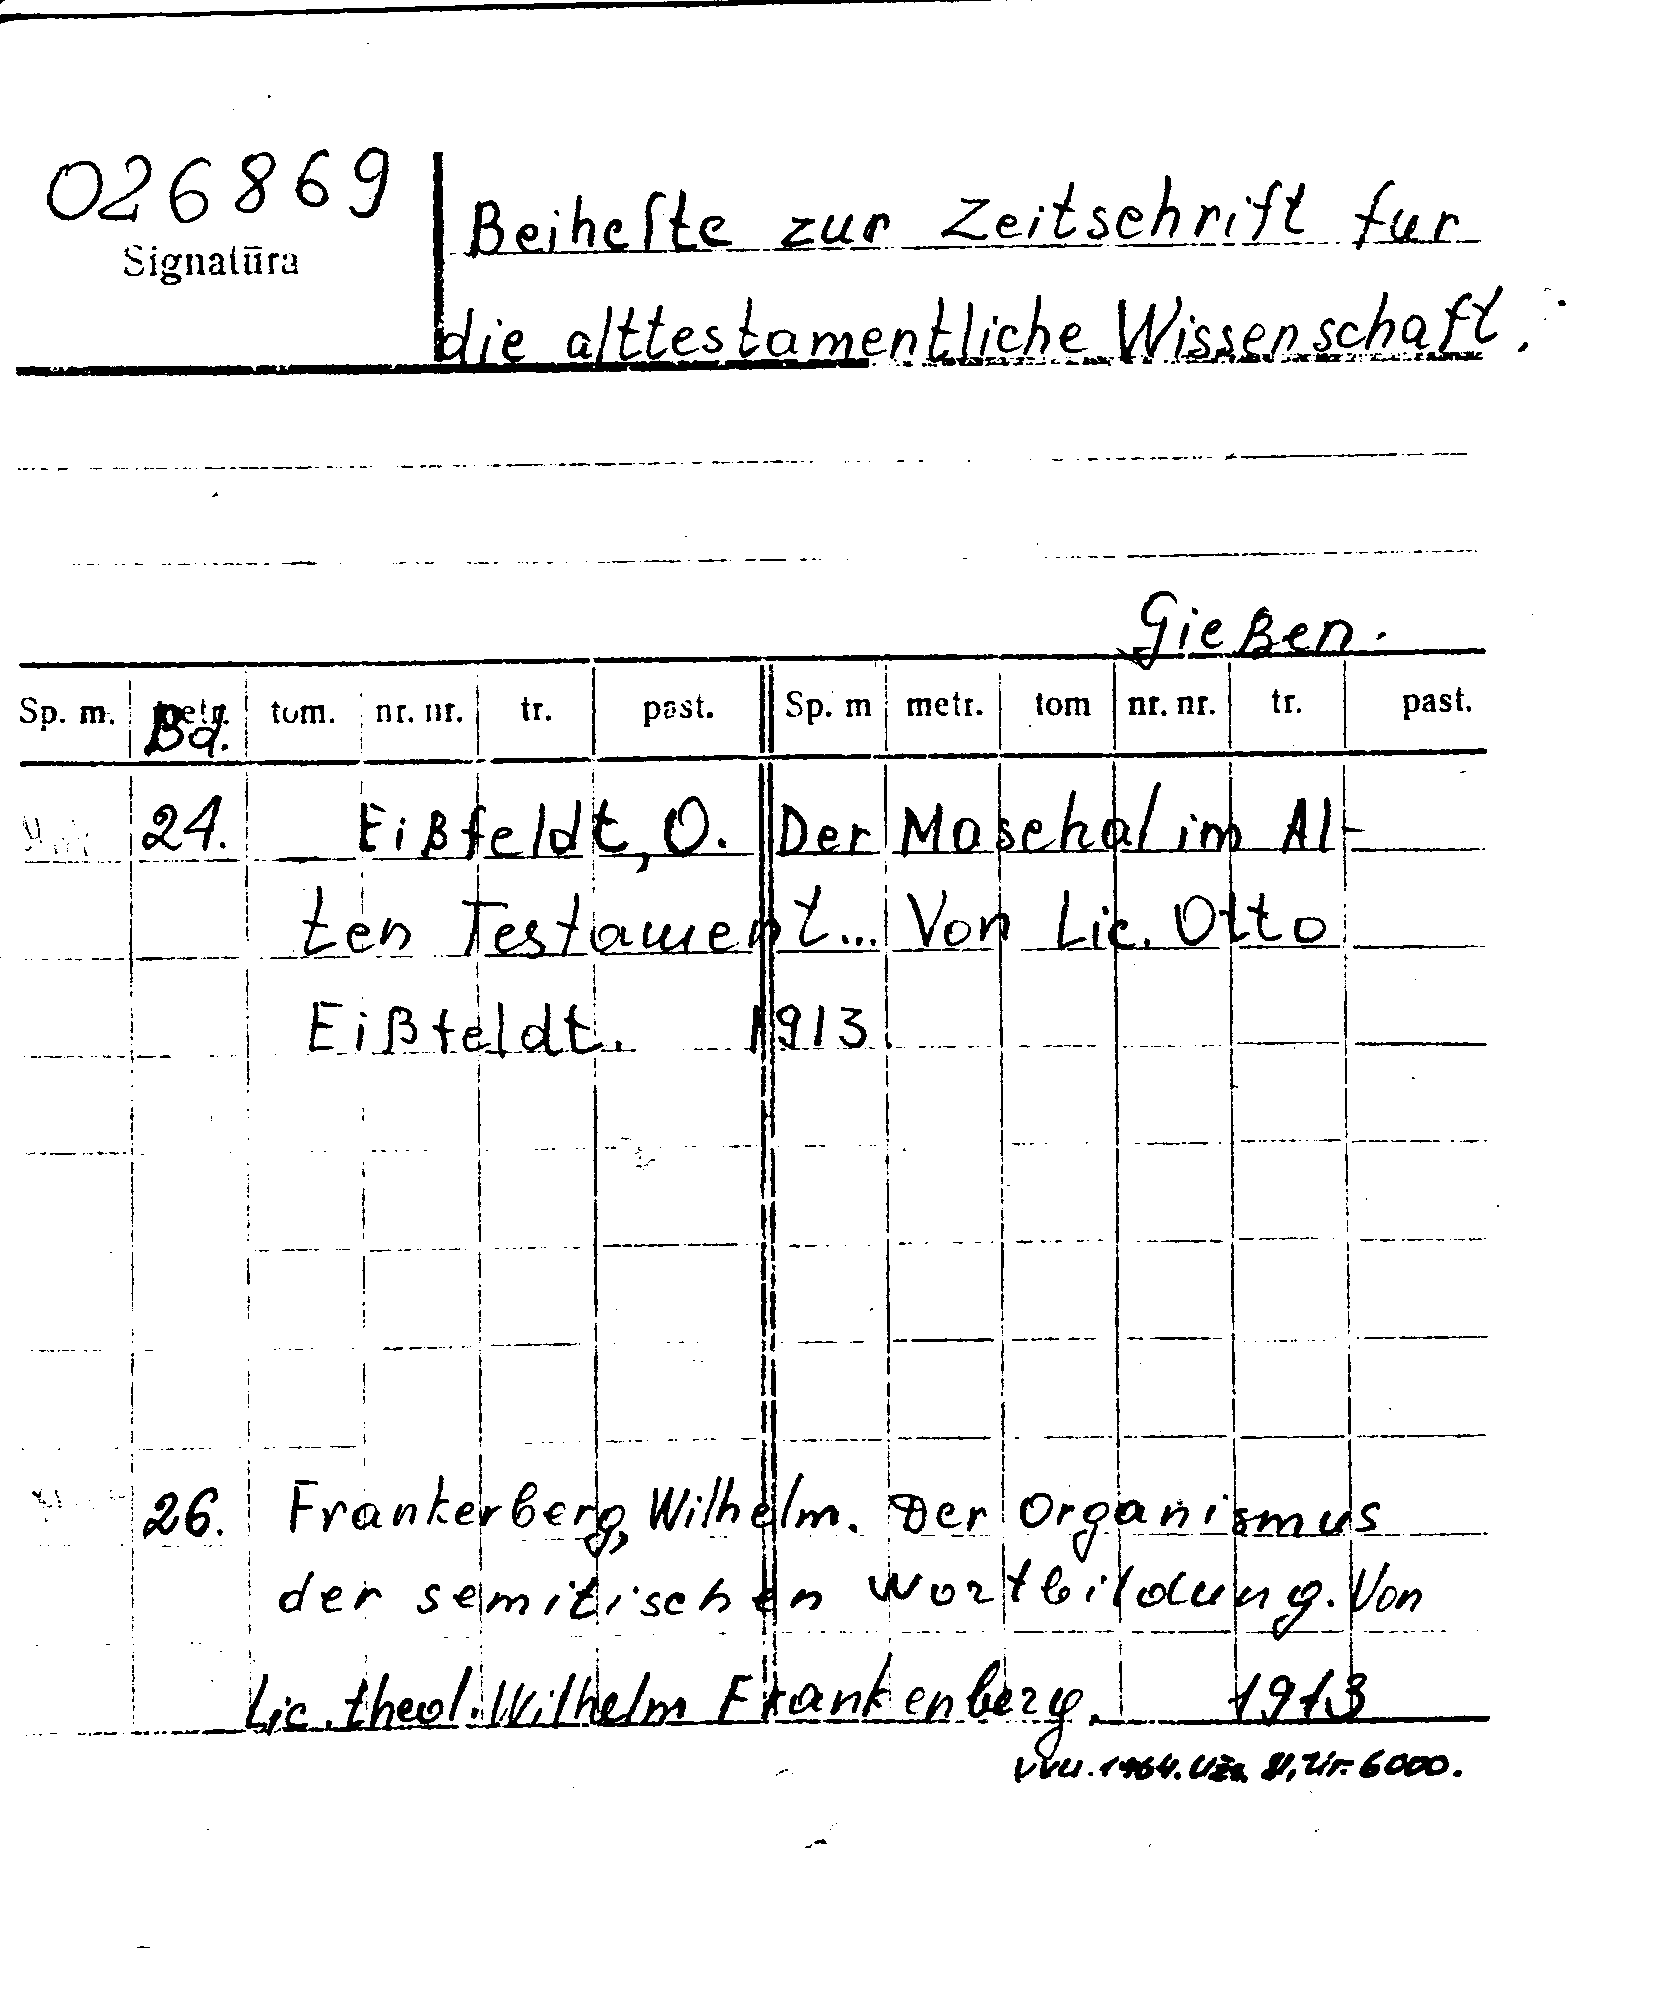 026869
Signatūra
Beihefte zur Zeitschrift fur
die alttestamentliche Wissenschaft.
Gießen.
Sp. m. metr. tom. nr. nr. tr. past. Sp. m metr. tom nr. nr. tr. past.
Bd.
24. Eißfeldt, O. Der Maschal im Al-
ten Testament... Von Lic. Otto
Eißfeldt. 1913
26. Frankerberg, Wilhelm. Der Organismus
der semitischen Wortbildung. Von
Lic. theol. Wilhelm Frankenberg. 1913
VVU. 1964. Užs. 6000.